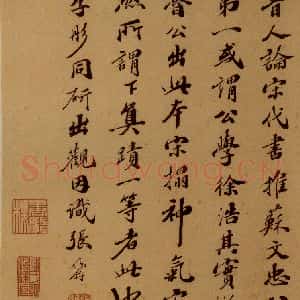 昔人論宋代書推蘇文忠
第一或謂公學徐浩其實
魯公出此本宋搨神氣
所謂下真蹟一等者此
彤同研出觀因識張